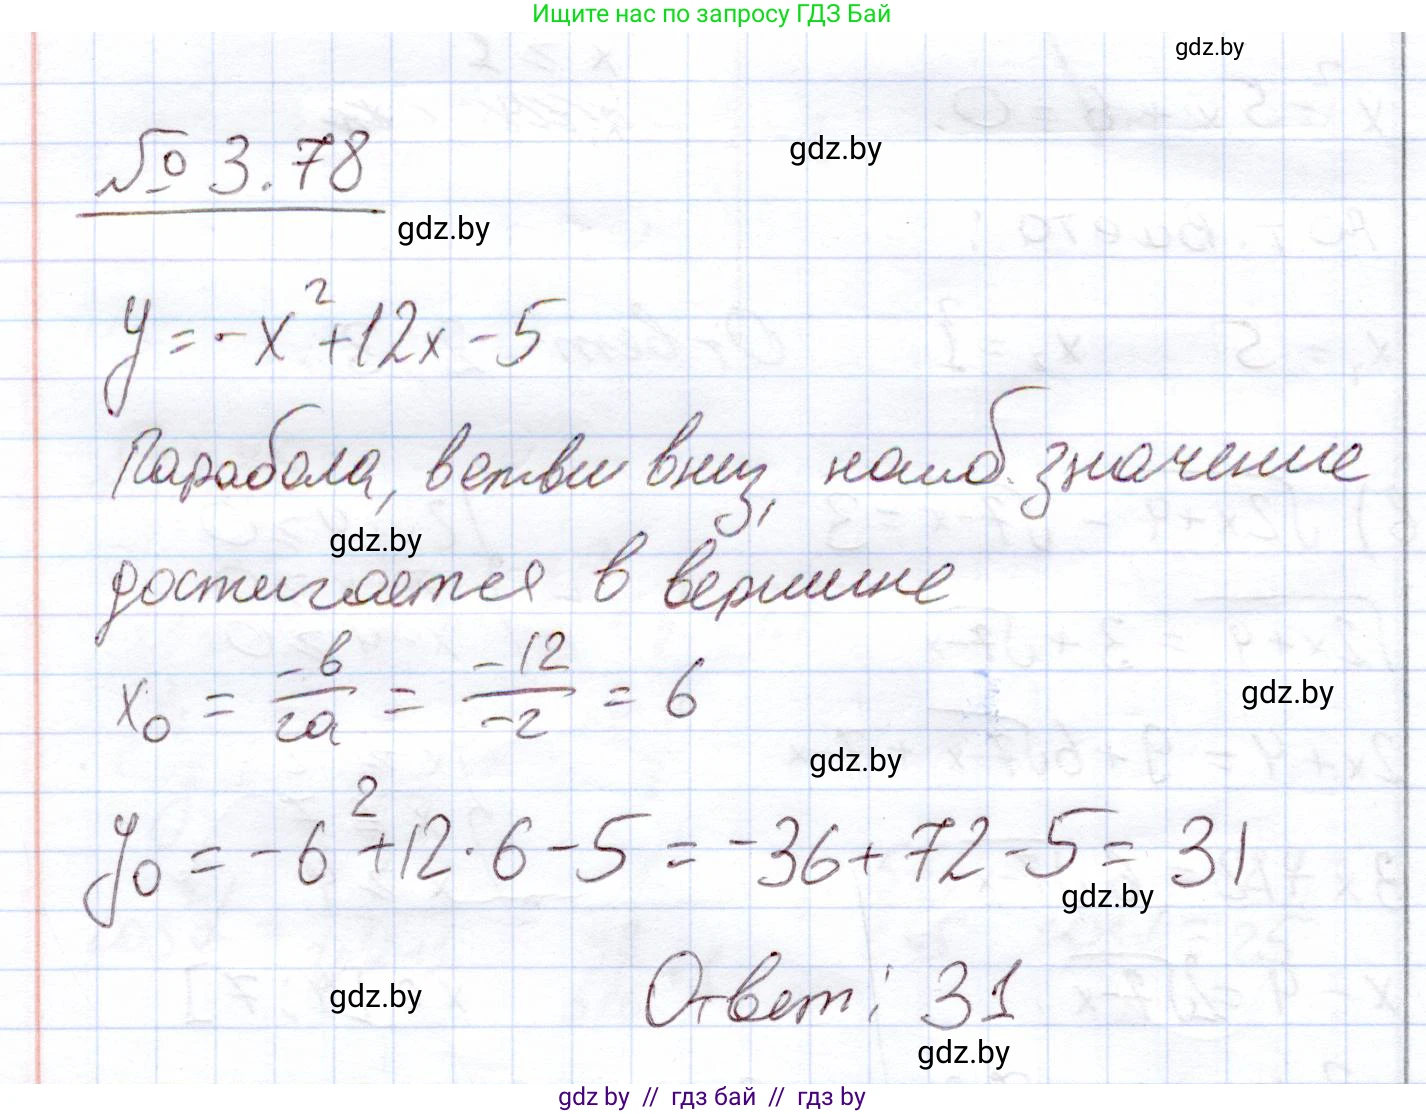 Ищите нас по запросу ГДЗ Бай
gdz.by
gdz.by
№ 3.78
gdz.by
y = -x² + 12x - 5
Парабола, ветви вниз, наиб. значение
gdz.by
достигается в вершине
x₀ = -в/2a = -12/-2 = 6
gdz.by
gdz.by
y₀ = -6² + 12 · 6 - 5 = -36 + 72 - 5 = 31
gdz.by
gdz.by
Ответ: 31
gdz.by
gdz by // гдз бай // гдз by